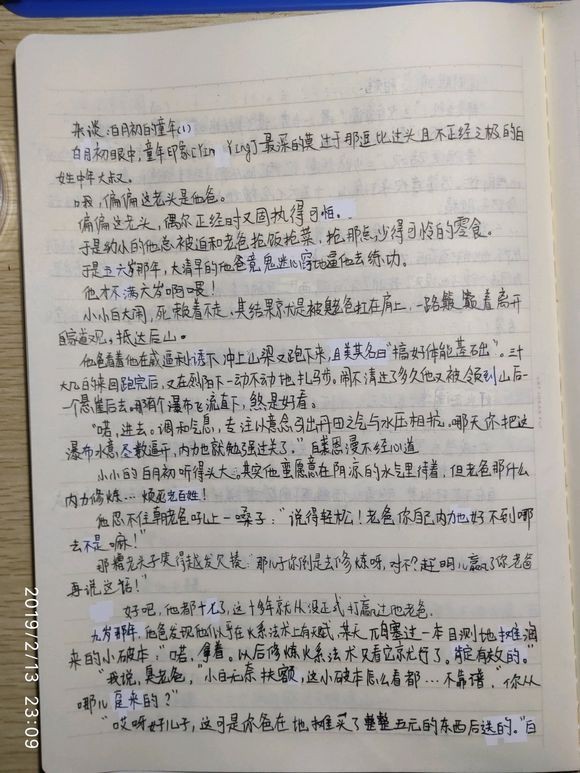 杂谈：白月初的童年(1)
白月初眼中，童年印象[Yin Ying]最深的莫过于那逗比过头且不正经之极的白
姓中年大叔。
哦，偏偏这老头是他爸。
偏偏这老头，偶尔正经时又固执得可怕。
于是幼小的他总被迫和老爸抢饭抢菜，抢那点少得可怜的零食。
于是五六岁那年，大清早的他爸竟鬼迷心窍地逼他去练功。
他才不满六岁啊喂！
小小白大闹，死赖着不走，其结果就是被老爸扛在肩上，一路颠颠着离开
自家道观，抵达后山。
他爸看着他在威逼利诱下冲上山梁又跑下来，且美其名曰"搞好体能基础"。三十
大几的来回跑完后，又在烈阳下一动不动地扎马步。闹不清过了多久他又被领到山后一
个悬崖后去。哪有个瀑布飞流直下，煞是好看。
"喏，进去。调和气息，专注以意念引出丹田之气与水压相抗。哪天你把这
瀑布水意尽数逼开，内力也就勉强过关了。"白裘恩漫不经心道
小小的白月初听得头大。其实他蛮愿意在阴凉的水气里待着，但老爸那什么
内力修炼…烦死老百姓！
他忍不住朝老爸吼上一嗓子："说得轻松！老爸你自己内力也好不到哪
去不是嘛！"
那糟老头子笑得越发欠揍："那儿子你倒是去修炼呀，对不？赶明儿赢了你老爸
再说这话！"
好吧，他都十九了，这十多年就从没正式打赢过他老爸.
九岁那年，他爸发现他们似乎在火系法术上有天赋，某天一顿塞过一本目测地摊淘
来的小破本："喏，拿着。以后修炼火系法术又看它就尤行了。肯定有效的。"
"我说，臭老爸，"小白无奈扶额，这小破本怎么看都…不靠谱，"你从
哪儿逛来的？"
"哎呀好儿子，这可是你爸在地摊买了整整五元的东西后送的。"白
2019/2/13 23:09